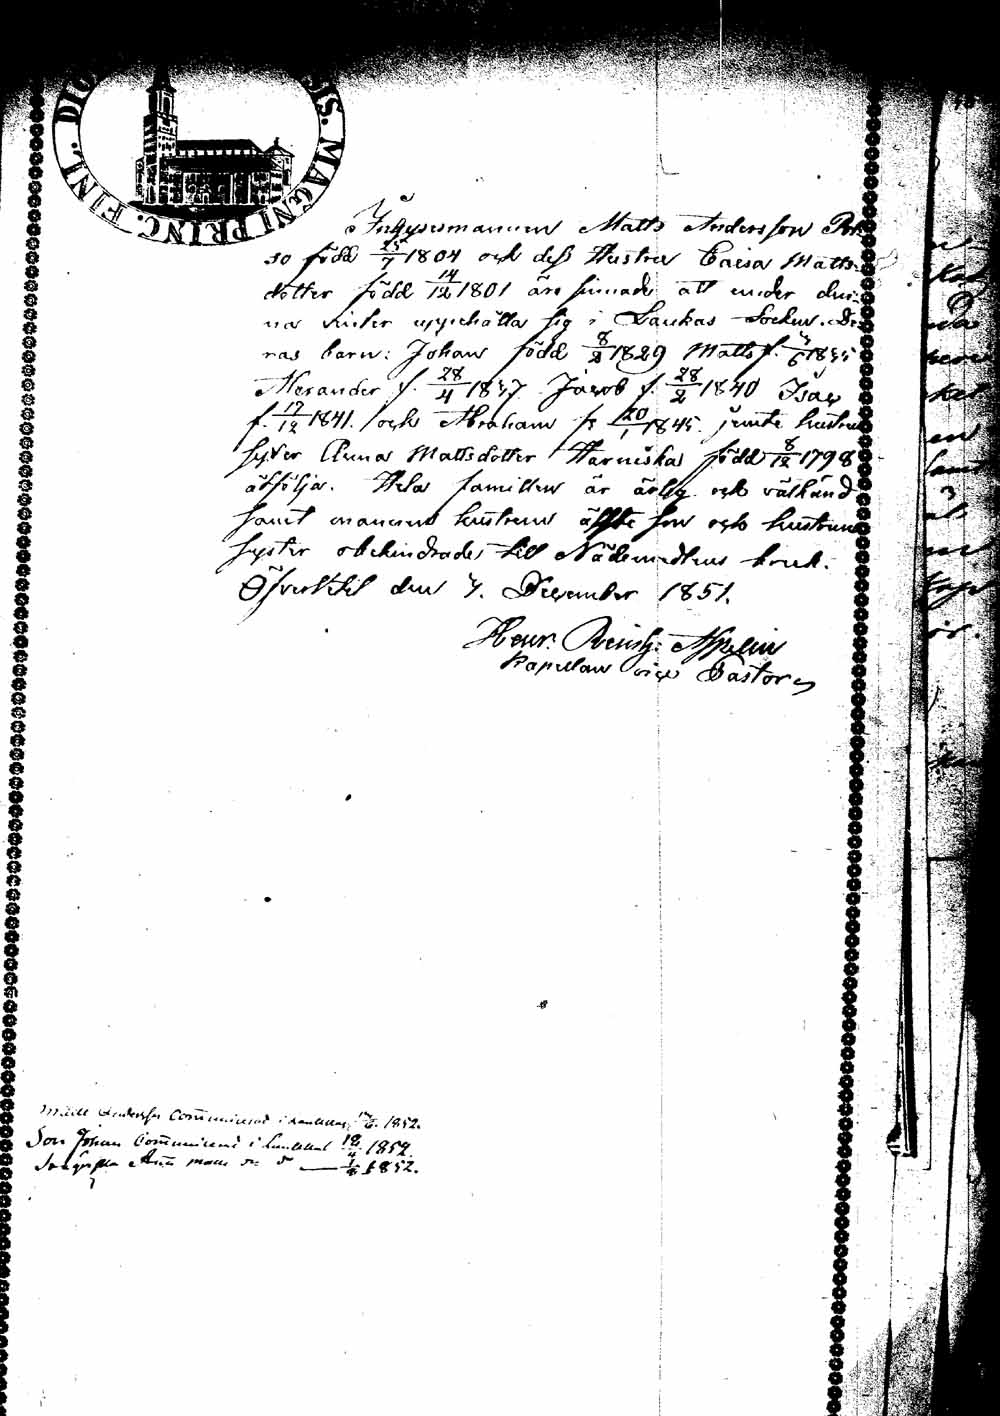 FINL. DIO IS. MAGNI PRINC.
Inhysesmannen Matts Andersson
so född 25/7 1804 och dess Hustru Caisa Matts-
dotter född 14/12 1801 äro sinnade att under den-
na vinter uppehålla sig i Laukas Socken. De-
ras barn: Johan född 8/2 1829 Matts f. 1835
Alexander f. 28/4 1837 Jacob f. 28/2 1840 Isac
f. 17/12 1841. och Abraham f. 20/1 1845. jemte hustrus
syster Anna Mattsdotter Harniska född 8/12 1798
åtfölja. Hela familien är ärlig och välkänd
samt mannen hustrun äldste son och hustruns
syster obehindrade till Nådemedlens bruk.
den 7. December 1851.
Henr. Appelin
Kapellan vice Pastor
Matts Andersson Communicerat i 1852.
Son Johan Communicerat i 18/4 1852.
1852.